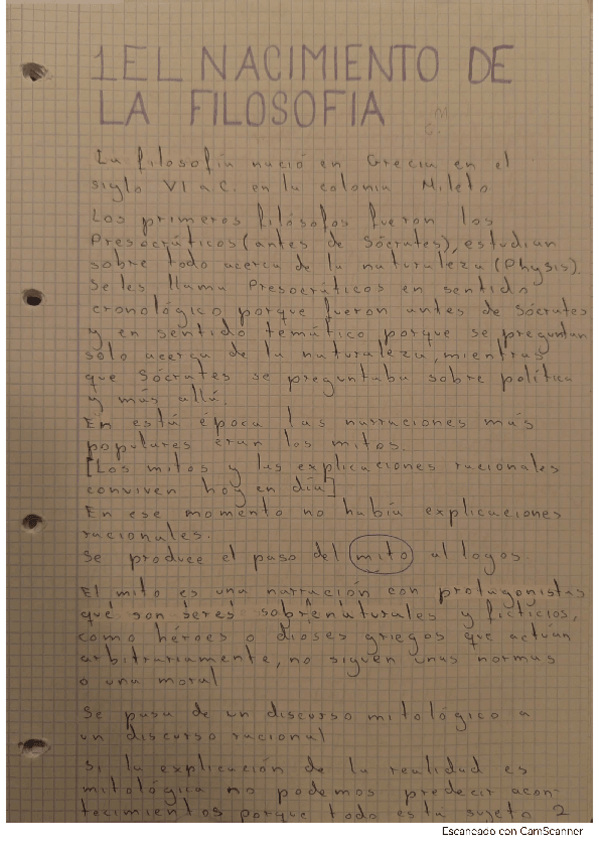 1 EL NACIMIENTO DE
LA FILOSOFIA
La filosofía nació en Grecia en el
siglo VI a.C. en la colonia Mileto
Los primeros filósofos fueron los
Presocráticos (antes de Sócrates), estudian
sobre todo acerca de la naturaleza (Physis).
Se les llama Presocráticos en sentido
cronológico porque fueron antes de Sócrates
y en sentido temático porque se preguntan
solo acerca de la naturaleza, mientras
que Sócrates se preguntaba sobre política
y más allá.
En está época las narraciones más
populares eran los mitos.
[Los mitos y las explicaciones racionales
conviven hoy en día]
En ese momento no había explicaciones
racionales.
Se produce el paso del mito al logos.
El mito es una narración con protagonistas
que son seres sobrenaturales y ficticios,
como héroes o dioses griegos que actúan
arbitrariamente, no siguen unas normas
o una moral
Se pasa de un discurso mitológico a
un discurso racional
Si la explicación de la realidad es
mitológica no podemos predecir acon-
tecimientos porque todo está sujeto a
Escaneado con CamScanner